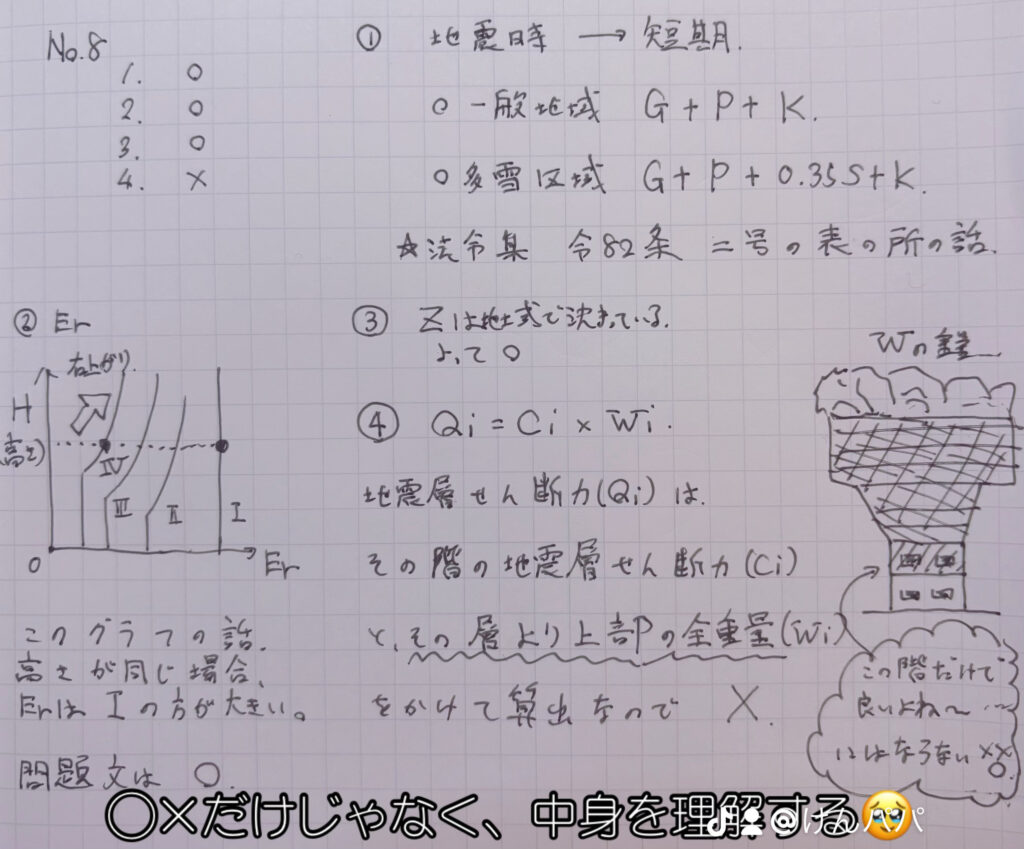 No.8
1. ○
2. ○
3. ○
4. ×
① 地震時 → 短期.
○一般地域 G+P+K.
○多雪区域 G+P+0.35S+K.
☆法令集 令82条 二号の表の所の話.
② Er
右上がり
H
(高さ)
IV
III
II
I
0
Er
このグラフの話.
高さが同じ場合、
ErはIの方が大きい。
問題文は ○.
③ Zは地域で決まっている.
よって○
④ Qi=Ci×Wi.
地震層せん断力(Qi)は.
その階の地震層せん断力(Ci)
と、その層より上部の全重量(Wi)
をかけて算出なので ×.
Wの
この階だけで
良いよね〜…
にはならない××
○.
○×だけじゃなく、中身を理解する🥹
@けんパパ